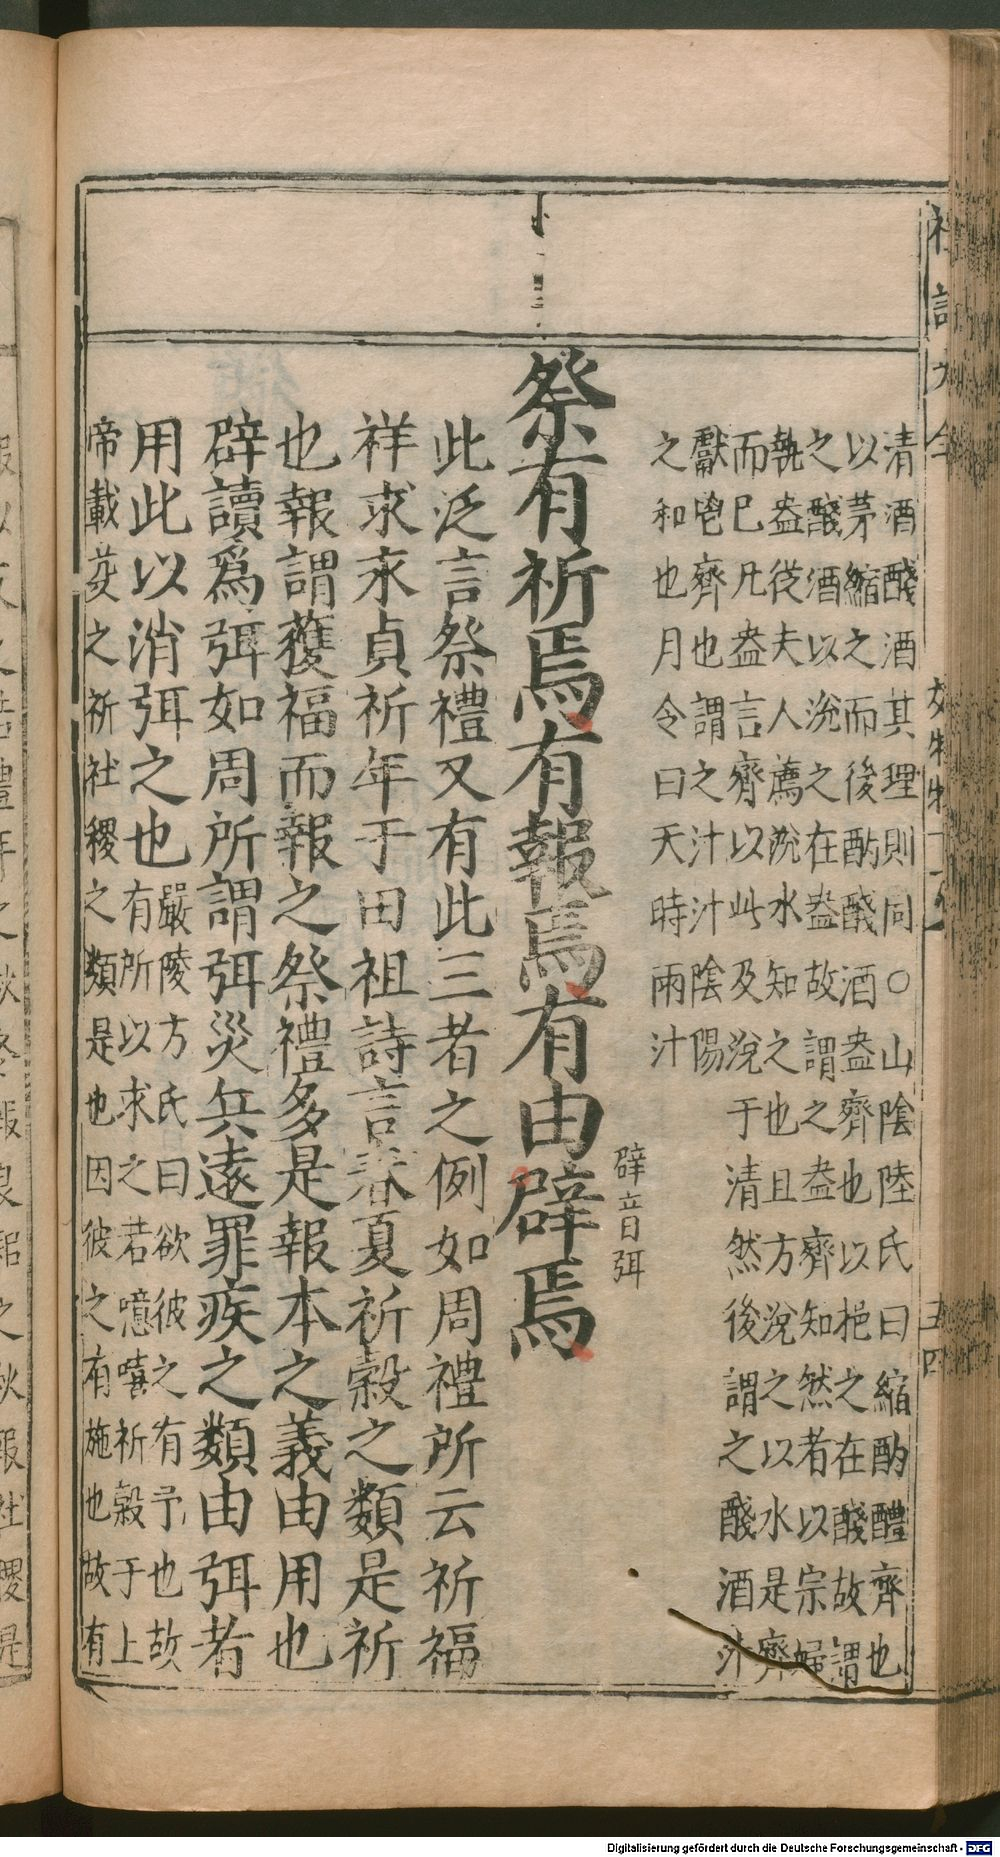 清酒醆酒其理則同○山陰陸氏曰縮酌醴齊也
以茅縮之而後酌醆酒盎齊也以挹之在醆故謂
之醆酒以涗之在盎故謂之盎齊知然者以宗婦
執盎從夫人薦涗水知之也且方涗之以水是齊
而已凡盎言齊以此及涗于清然後謂之醆酒汁
獻鬯齊也謂之汁汁陰陽
之和也月令曰天時雨汁
辟音弭
祭有祈焉有報焉有由辟焉
此泛言祭禮又有此三者之例如周禮所云祈福
祥求永貞祈年于田祖詩言春夏祈穀之類是祈
也報謂獲福而報之祭禮多是報本之義由用也
辟讀爲弭如周所謂弭災兵遠罪疾之類由弭者
用此以消弭之也
嚴陵方氏曰欲彼之有予也故
有所以求之若噫嘻祈穀于上
帝載芟之祈社稷之類是也因彼之有施也故有
Digitalisierung gefördert durch die Deutsche Forschungsgemeinschaft - DFG